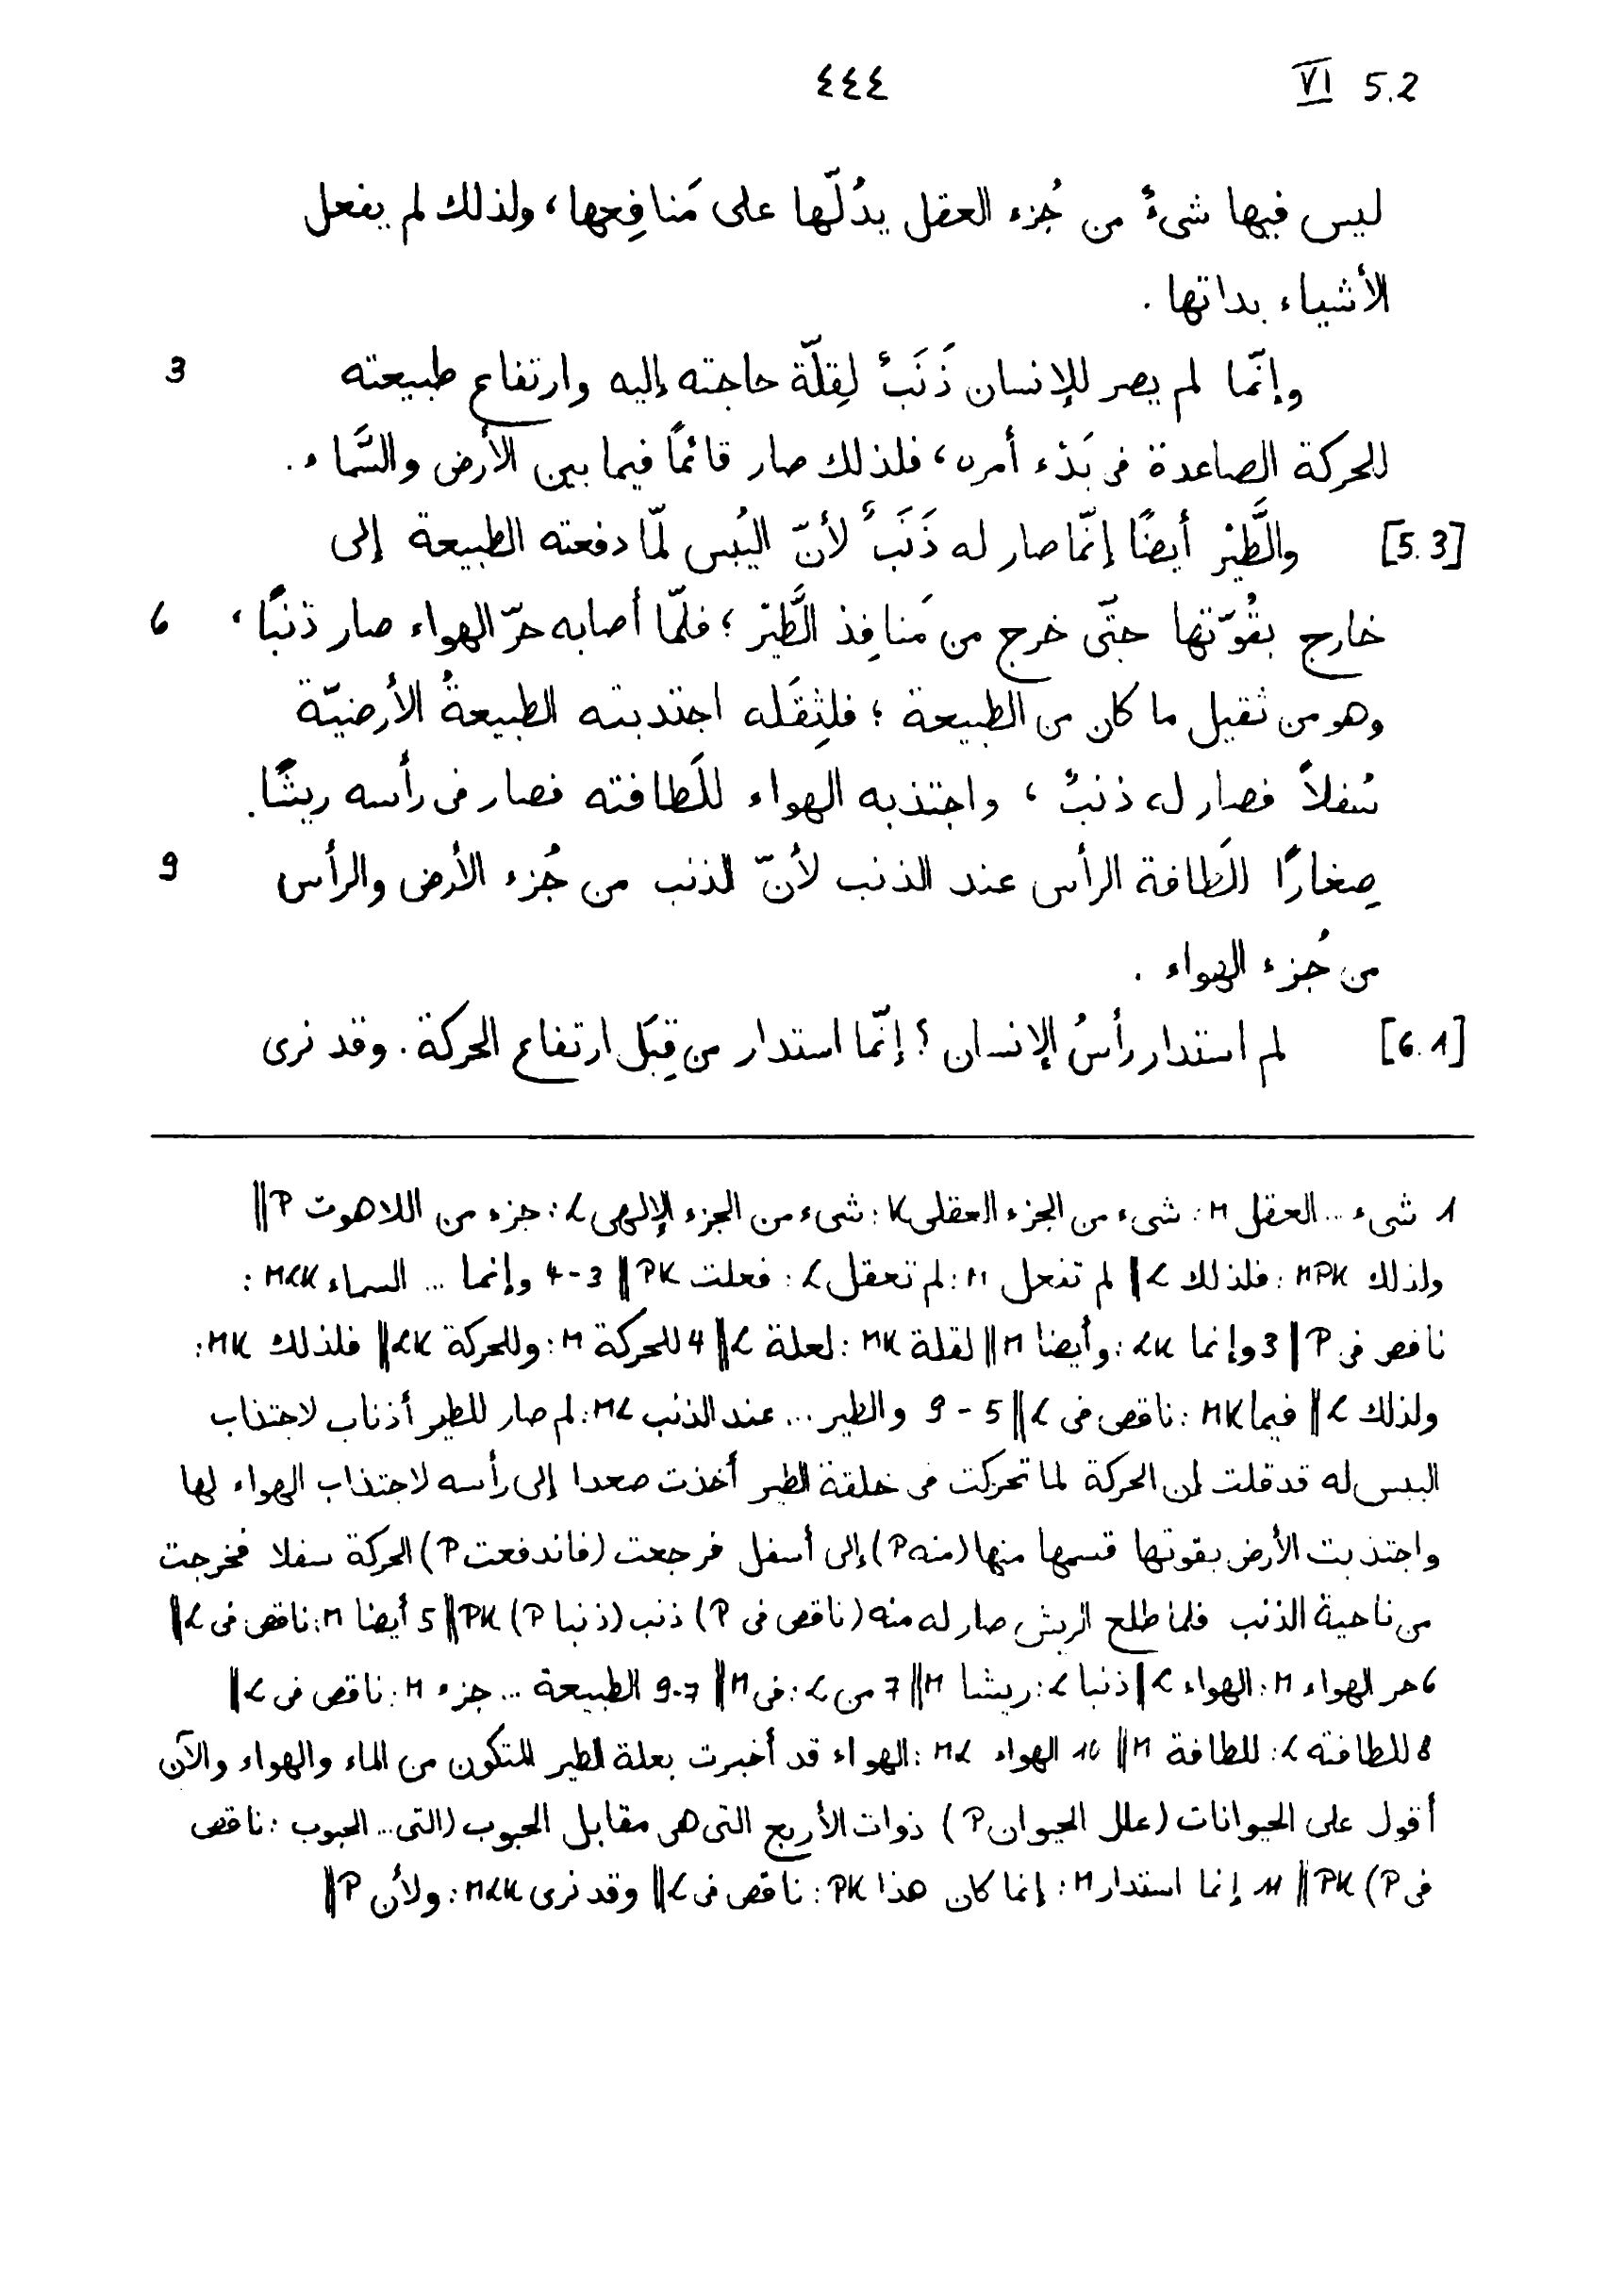 ٤٤٤ VI 5.2
ليس فيها شىءٌ من جُزء العقل يدُلّها على مَنافِعها، ولذلك لم يفعل
الأشياء بداتها .
3 وإنّما لم يصر للإنسان ذَنَبٌ لِقلّة حاجته إليه وارتفاع طبيعته
للحركة الصاعدة فى بَدْء أمره، فلذلك صار قائمًا فيما بين الأرض والسَّماء .
[5.3] والطَّيْر أيضًا إنّما صار له ذَنَبٌ لأنّ اليُبس لمّا دفعته الطبيعة إلى
6 خارج بقُوّتها حتّى خرج من مَنافِذ الطَّيْر ؛ فلمّا أصابه حرّ الهواء صار ذنبًا ،
وهو من ثقيل ما كان من الطبيعة ؛ فلِثِقَله اجتذبته الطبيعةُ الأرضيّة
سُفلاً فصار له ذنبٌ ، واجتذبه الهواء للَطافته فصار فى رأسه ريشًا .
9 صِغارًا للَطافة الرأس عند الذنب لأنّ الذنب من جُزء الأرض والرأس
من جُزء الهواء .
[6.1] لم استدار رأسُ الإنسان ؟ إنّما استدار من قِبَل ارتفاع الحركة . وقد نرى
1 شىء ... العقل M : شىء من الجزء العقلى K : شىء من الجزء الإلهى L : جزء من اللاهوت P ||
ولذلك MPK : فلذلك L || لم تفعل M : لم تعقل L : فعلت PK || 3-4 وإنما ... السماء MLK :
ناقص فى P || 3 وإنما LK : وأيضا M || لقلة MK : لعلة L || 4 للحركة M : وللحركة LK || فلذلك MK :
ولذلك L || فيما MK : ناقص فى L || 5 - 9 والطير ... عند الذنب ML : لم صار للطير أذناب لاجتذاب
اليبس له قد قلت إن الحركة لما تحركت فى خلقة الطير أخذت صعدا إلى رأسه لاجتذاب الهواء لها
واجتذبت الأرض بقوتها قسمها منها (منه P) إلى أسفل فرجعت (فاندفعت P) الحركة سفلا فخرجت
من ناحية الذنب فلما طلع الريش صار له منه (ناقص فى P) ذنب (ذنبا P) PK || 5 أيضا M : ناقص فى L ||
6 حر الهواء M : الهواء L || ذنبا L : ريشا M || 7 من L : فى M || 7-9 الطبيعة ... جزء M : ناقص فى L ||
8 للطافته L : للطافة M || 10 الهواء ML : الهواء قد أخبرت بعلة الطير المتكون من الماء والهواء والآن
أقول على الحيوانات (علل الحيوان P) ذوات الأربع التى هى مقابل الحبوب (التى ... الحبوب : ناقص
فى P) PK || 11 إنما استدار M : إنما كان هذا PK : ناقص فى L || وقد نرى MLK : ولأن P ||